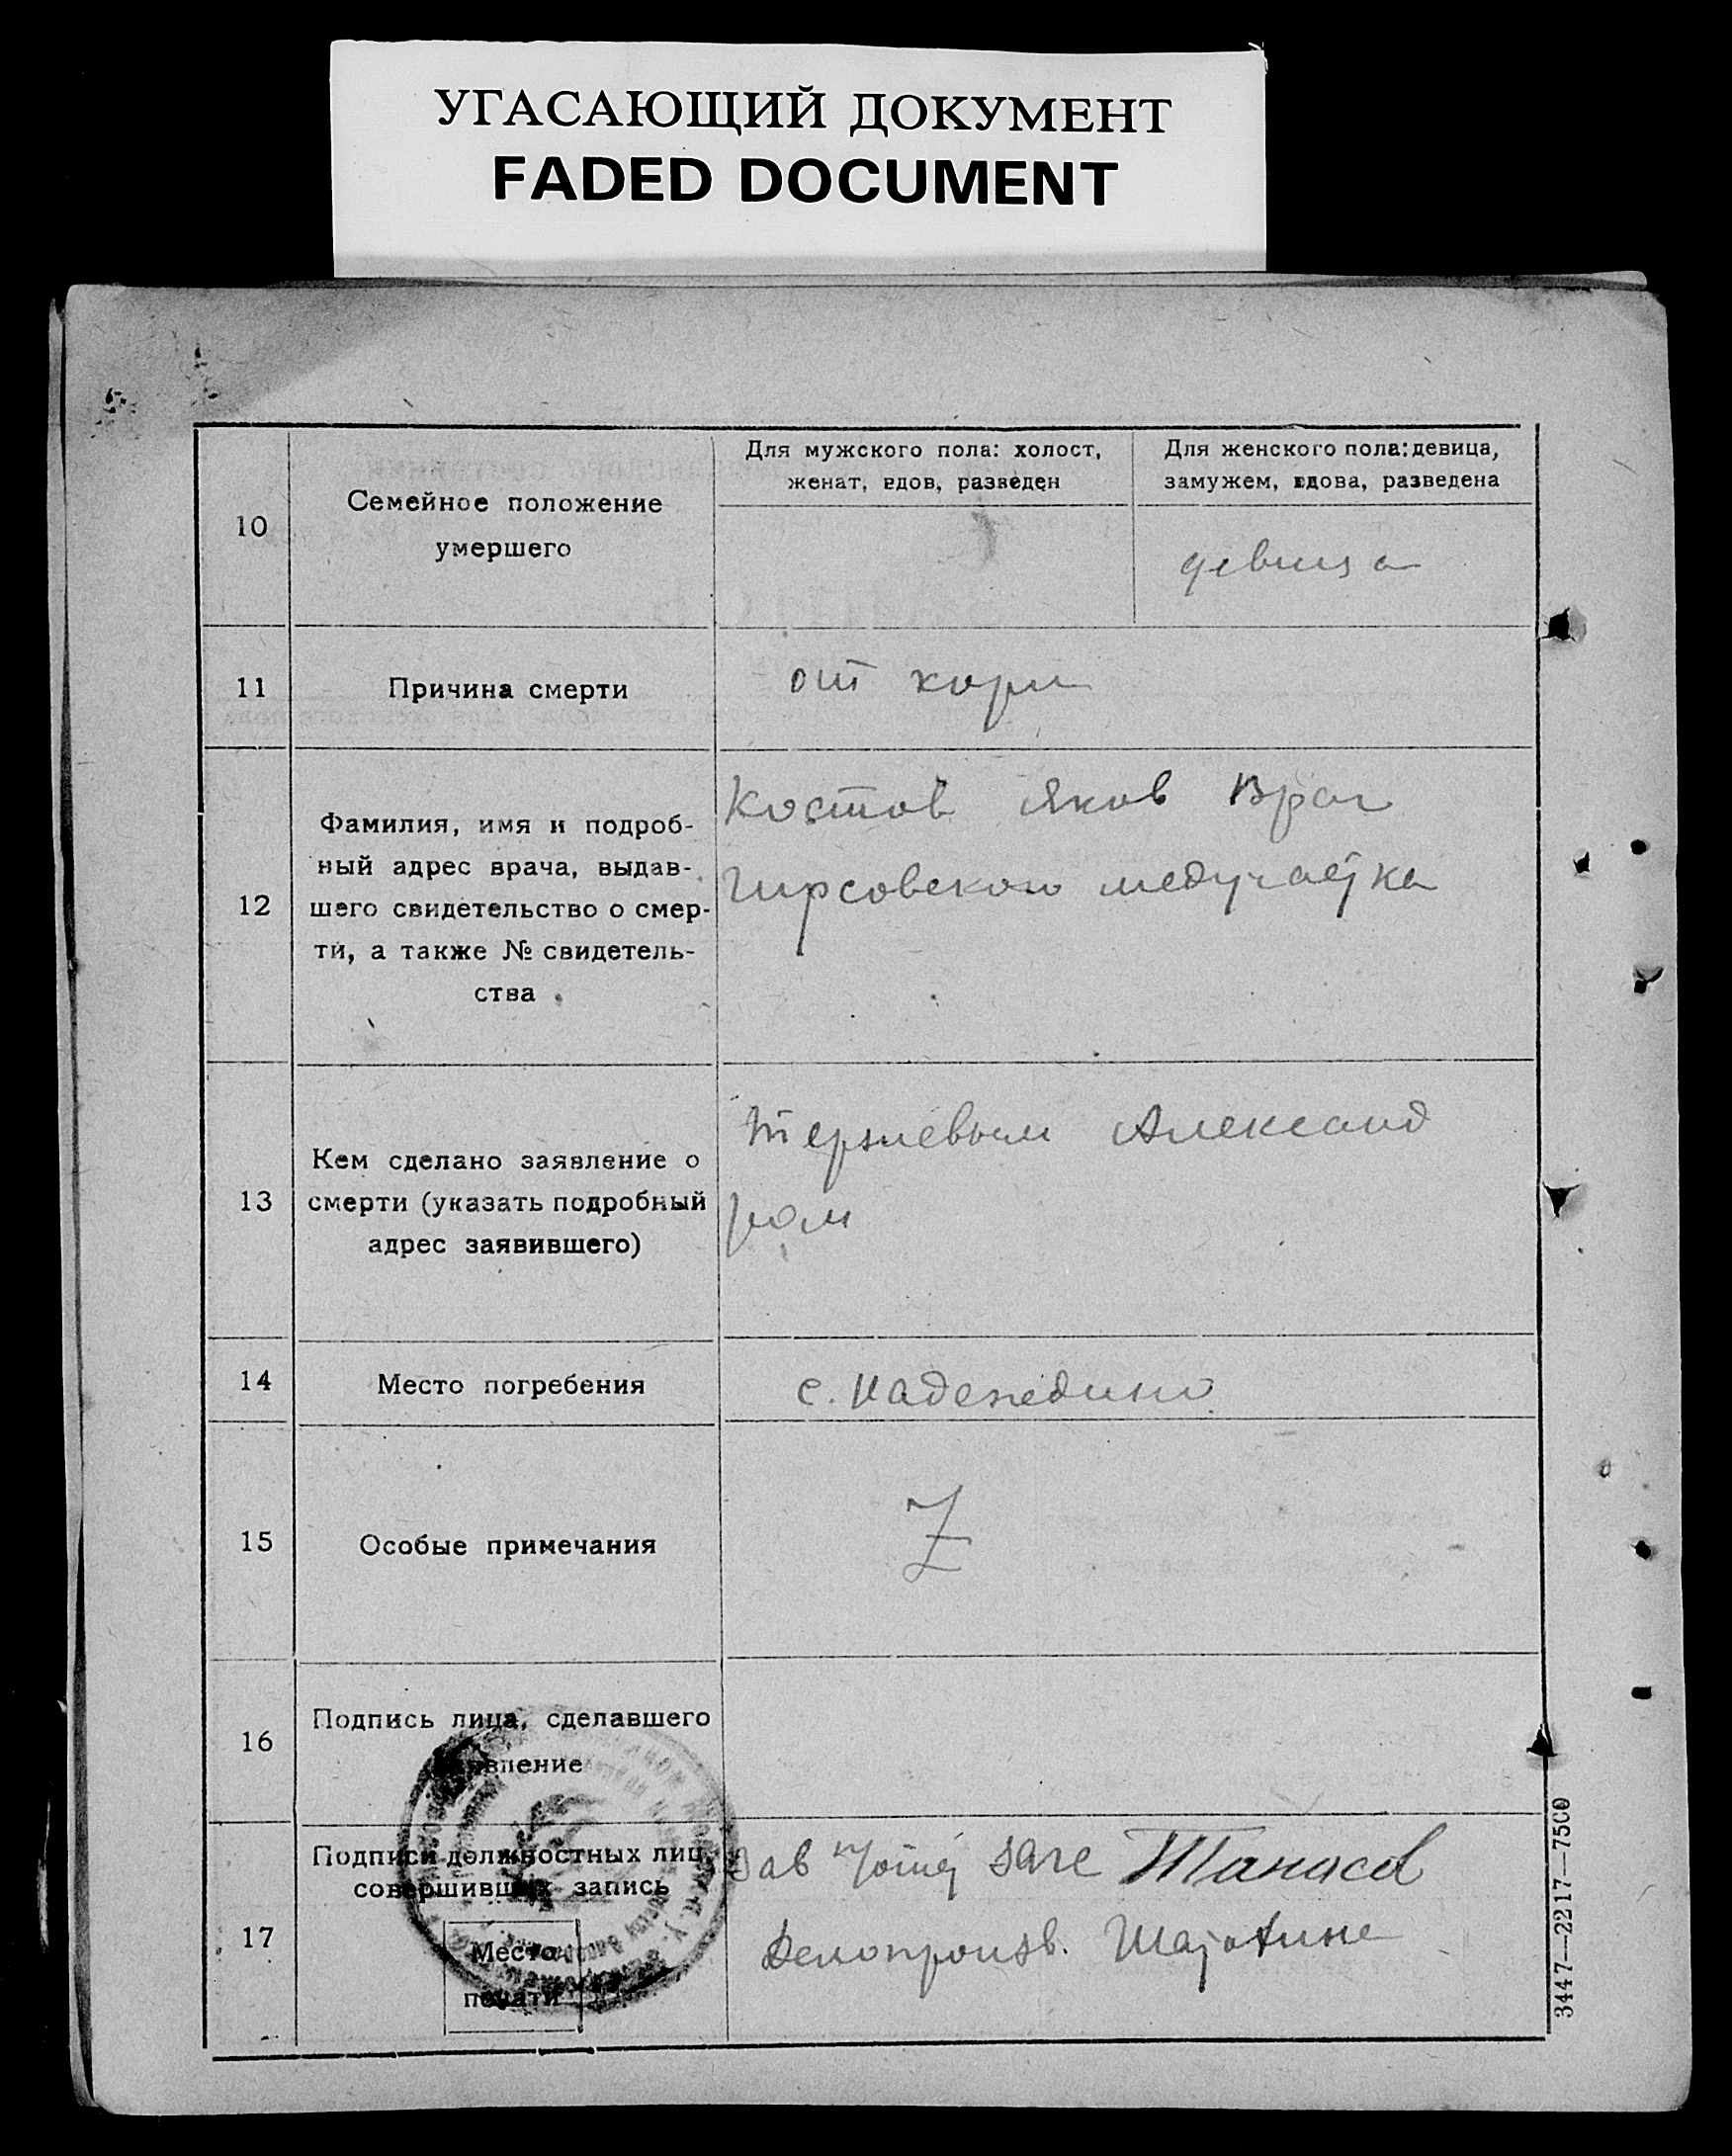 УГАСАЮЩИЙ ДОКУМЕНТ
FADED DOCUMENT
10
Семейное положение
умершего
Для мужского пола: холост,
женат, вдов, разведен
Для женского пола: девица,
замужем, вдова, разведена
девица
11
Причина смерти
от кори
12
Фамилия, имя и подроб-
ный адрес врача, выдав-
шего свидетельство о смер-
ти, а также № свидетель-
ства
Костов Яков Врач
Гирсовского медучастка
13
Кем сделано заявление о
смерти (указать подробный
адрес заявившего)
Терзиевым Александ
ром
14
Место погребения
с. Надеждино
15
Особые примечания
Z
16
Подпись лица, сделавшего
заявление
17
Подписи должностных лиц,
совершивших запись
Место
печати
Зав загс Танасов
Делопроизв.
3447—2217—7500